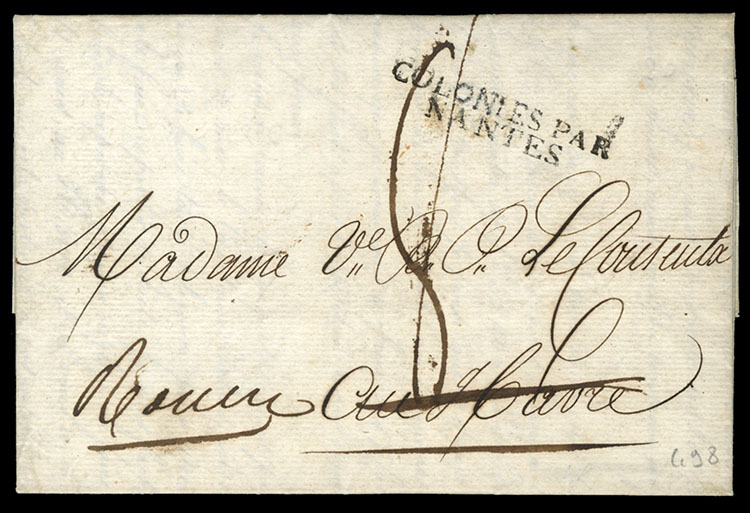 COLONIES PAR
NANTES
8
Madame Ve. R. C. Le Couteulx
Rouen au Havre
498